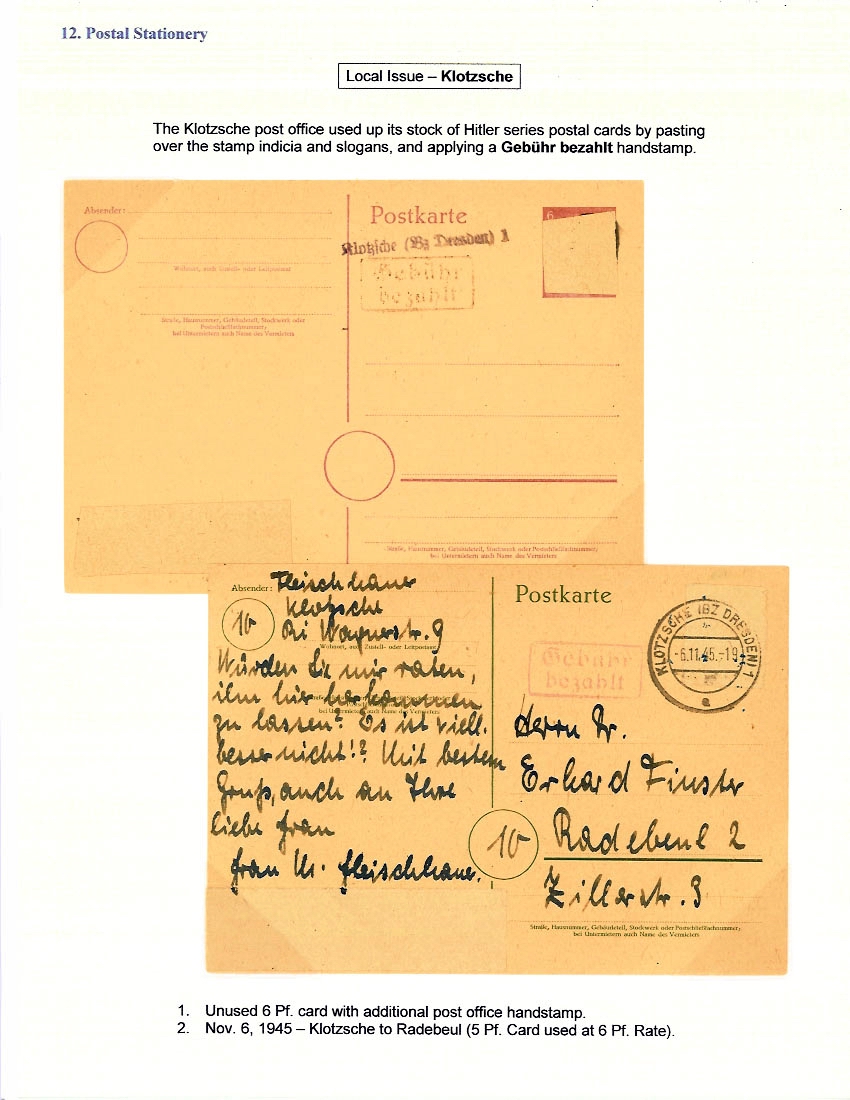 12. Postal Stationery
Local Issue – Klotzsche
The Klotzsche post office used up its stock of Hitler series postal cards by pasting
over the stamp indicia and slogans, and applying a Gebühr bezahlt handstamp.
Absender:
Wohnort, auch Zustell- oder Leitpostamt
Straße, Hausnummer, Gebäudeteil, Stockwerk oder
Postschließfachnummer;
bei Untermietern auch Name des Vermieters
Postkarte
6
Klotzsche (Bz Dresden) 1
Gebühr
bezahlt
Straße, Hausnummer, Gebäudeteil, Stockwerk oder Postschließfachnummer;
bei Untermietern auch Name des Vermieters
Absender: Fleischhauer
Klotzsche
Ri Wagnerstr. 9
10
Wohnort, auch Zustell- oder Leitpostamt
Würden Sie mir raten,
ihn hier herkommen
zu lassen? Es ist viell.
besser nicht!? Mit bestem
Gruß, auch an Ihre
liebe Frau
Frau M. Fleischhauer.
Postkarte
KLOTZSCHE (BZ DRESDEN) 1
-6.11.45.-19
a
Gebühr
bezahlt
Herrn Dr.
Erhard Finster
10
Radebeul 2
Zillerstr. 3
Straße, Hausnummer, Gebäudeteil, Stockwerk oder Postschließfachnummer;
bei Untermietern auch Name des Vermieters
1. Unused 6 Pf. card with additional post office handstamp.
2. Nov. 6, 1945 – Klotzsche to Radebeul (5 Pf. Card used at 6 Pf. Rate).